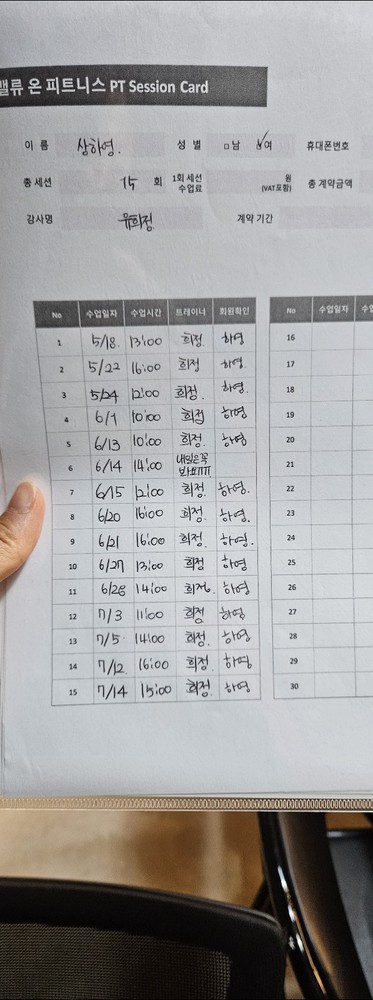 밸류 온 피트니스 PT Session Card
이 름 상하영. 성 별 □남 ☑여 휴대폰번호
총 세션 15 회 1회 세션 수업료 원 (VAT포함) 총 계약금액
강사명 유희정 계약 기간
No 수업일자 수업시간 트레이너 회원확인 No 수업일자
1 5/18. 13:00 희정 하영 16
2 5/22 16:00 희정 하영 17
3 5/24 12:00 희정. 하영. 18
4 6/1 10:00 희정 하영 19
5 6/13 10:00 희정. 하영 20
6 6/14 14:00 내일은꼭 봐요ㅠㅠ 21
7 6/15 12:00 희정 하영. 22
8 6/20 16:00 희정. 하영. 23
9 6/21 16:00 희정. 하영. 24
10 6/27 13:00 희정 하영 25
11 6/28 14:00 희정. 하영 26
12 7/3 11:00 희정 하영 27
13 7/5 14:00 희정. 하영 28
14 7/12. 16:00 희정. 하영 29
15 7/14 15:00 희정. 하영 30